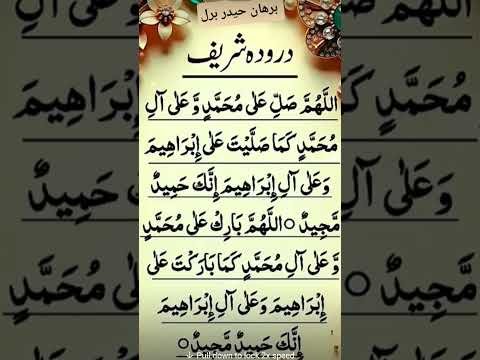 برهان حیدر برل
درودہ شریف
اَللّٰهُمَّ صَلِّ عَلٰى مُحَمَّدٍ وَّ عَلٰٓى اٰلِ
مُحَمَّدٍ كَمَا صَلَّيْتَ عَلٰٓى اِبْرَاهِيمَ
وَعَلٰٓى اٰلِ اِبْرَاهِيمَ اِنَّكَ حَمِيدٌ
مَّجِيدٌ ○ اَللّٰهُمَّ بَارِكْ عَلٰى مُحَمَّدٍ
وَّ عَلٰٓى اٰلِ مُحَمَّدٍ كَمَا بَارَكْتَ عَلٰٓى
اِبْرَاهِيمَ وَعَلٰٓى اٰلِ اِبْرَاهِيمَ
اِنَّكَ حَمِيدٌ مَّجِيدٌ ○
Pull down to lock 2x speed